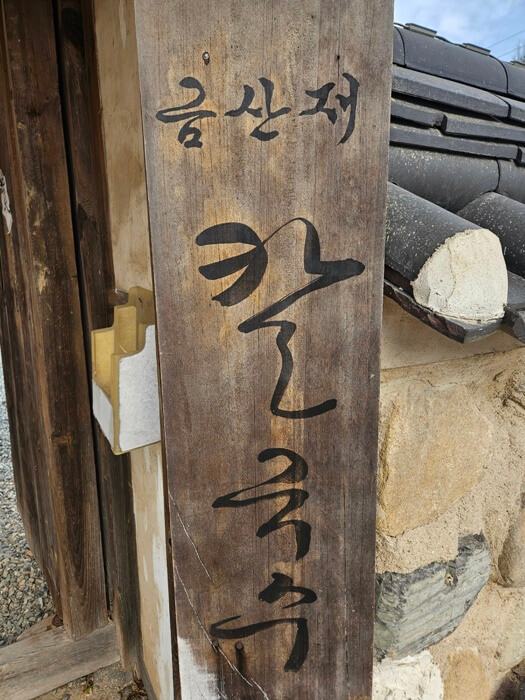 금산재
칼국수